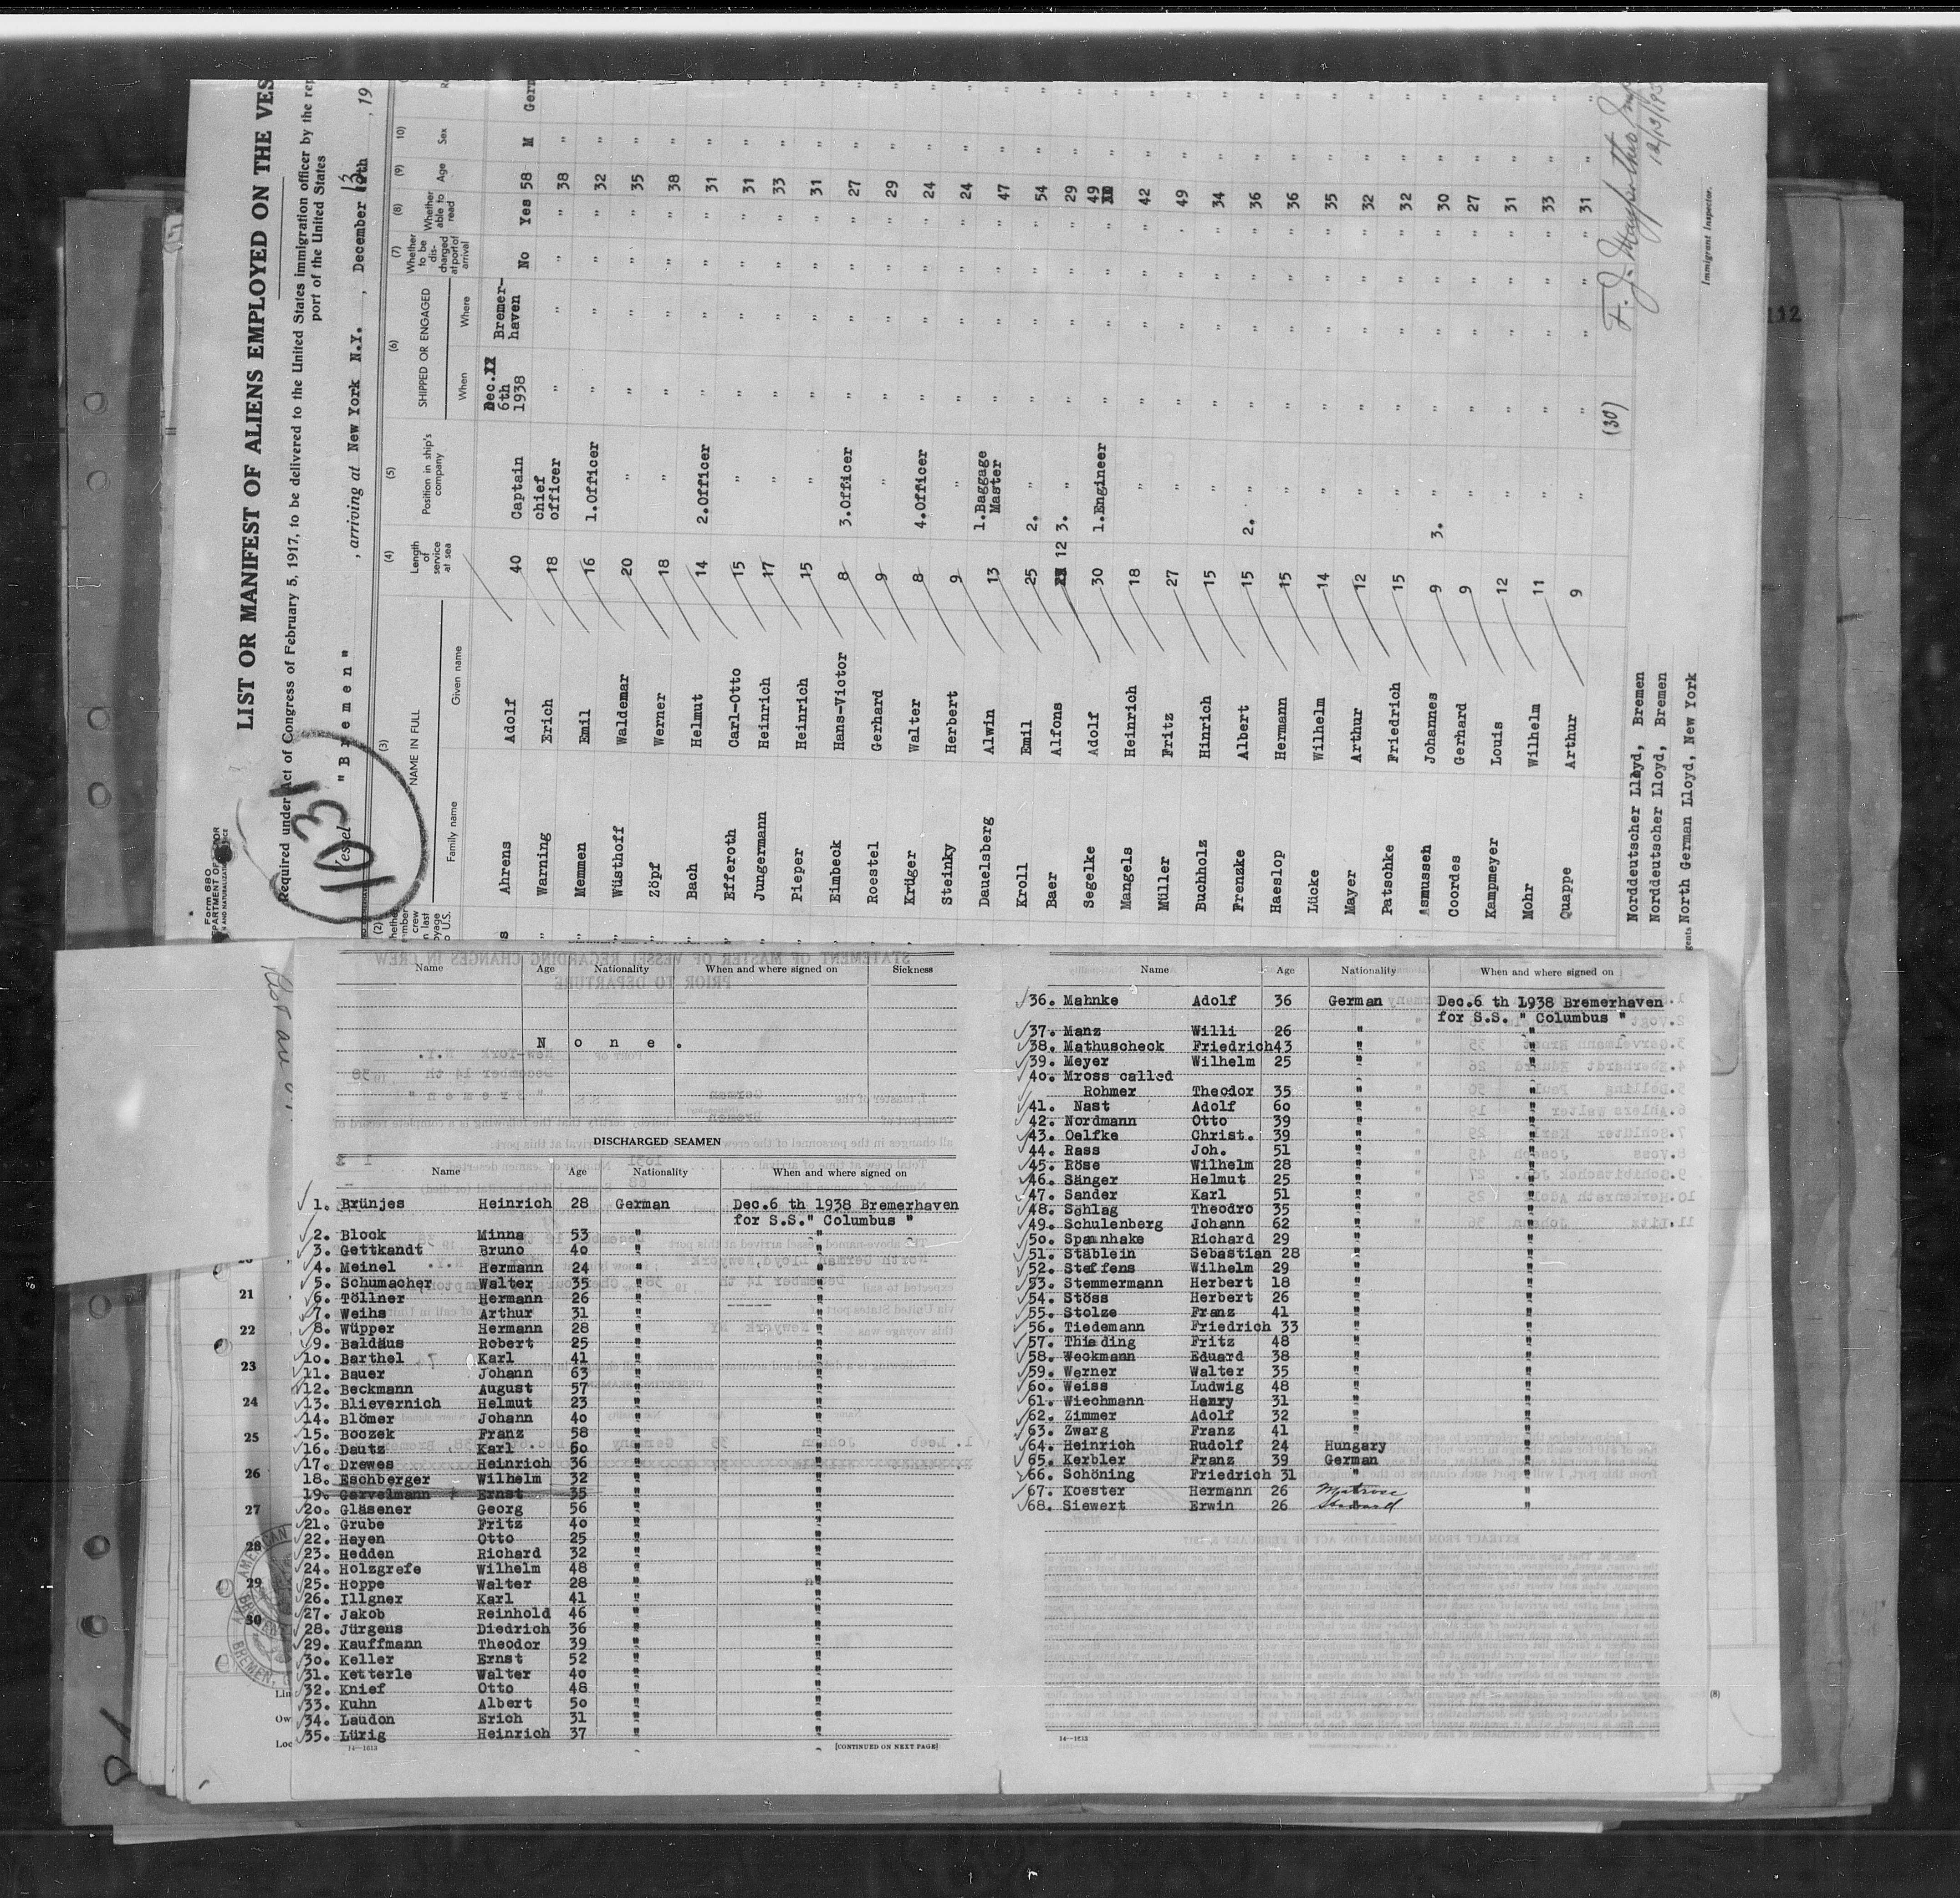 LIST OR MANIFEST OF ALIENS EMPLOYED ON THE VES
Required under Act of Congress of February 5, 1917, to be delivered to the United States immigration officer by the rep
port of the United States
Vessel " B r e m e n " , arriving at New York N.Y. , December 13 th , 19
1031
Form 680
(2) (3) (4) (5) (6) (7) (8) (9) 10)
NAME IN FULL Length of service at sea Position in ship's company SHIPPED OR ENGAGED Whether to be discharged at port of arrival Whether able to read Age Sex
Family name Given name When Where
Ahrens Adolf 40 Captain Dec. 6th 1938 Bremerhaven No Yes 58 M Germ
" Warning Erich 18 chief officer " " " " 38 " "
" Memmen Emil 16 1.Officer " " " " 32 " "
" Wüsthoff Waldemar 20 " " " " " 35 " "
" Zöpf Werner 18 " " " " " 38 " "
" Bach Helmut 14 2.Officer " " " " 31 " "
" Efferoth Carl-Otto 15 " " " " " 31 " "
" Jungermann Heinrich 17 " " " " " 33 " "
" Pieper Heinrich 15 " " " " " 31 " "
" Eimbeck Hans-Victor 8 3.Officer " " " " 27 " "
" Roestel Gerhard 9 " " " " " 29 " "
" Krüger Walter 8 4.Officer " " " " 24 " "
" Steinky Herbert 9 " " " " " 24 " "
Dauelsberg Alwin 13 1.Baggage Master " " " " 47 " "
Kroll Emil 25 2. " " " " " 54 " "
Baer Alfons 12 3. " " " " " 29 " "
Segelke Adolf 30 1.Engineer " " " " 49 " "
Mangels Heinrich 18 " " " " " 42 " "
Müller Fritz 27 " " " " " 49 " "
Buchholz Hinrich 15 " " " " " 34 " "
Frenzke Albert 15 2. " " " " " 36 " "
Haeslop Hermann 15 " " " " " 36 " "
Lücke Wilhelm 14 " " " " " 35 " "
Mayer Arthur 12 " " " " " 32 " "
Patschke Friedrich 15 " " " " " 32 " "
Asmussen Johannes 9 3. " " " " " 30 " "
Coordes Gerhard 9 " " " " " 27 " "
Kampmeyer Louis 12 " " " " " 31 " "
Mohr Wilhelm 11 " " " " " 33 " "
Quappe Arthur 9 " " " " " 31 " "
(30)
Norddeutscher Lloyd, Bremen
Norddeutscher Lloyd, Bremen
gents North German Lloyd, New York
Immigrant Inspector.
112
21
22
23
24
25
26
27
28
29
30
Lin
Ow
Loc
(8)
Name Age Nationality When and where signed on Sickness
N o n e .
DISCHARGED SEAMEN
Name Age Nationality When and where signed on
1. Brünjes Heinrich 28 German Dec.6 th 1938 Bremerhaven
for S.S." Columbus "
2. Block Minna 53 " "
3. Gettkandt Bruno 40 " "
4. Meinel Hermann 24 " "
5. Schumacher Walter 35 " "
6. Töllner Hermann 26 " "
7. Weihs Arthur 31 " "
8. Wüpper Hermann 28 " "
9. Baldäus Robert 25 " "
10. Barthel Karl 41 " "
11. Bauer Johann 63 " "
12. Beckmann August 57 " "
13. Blievernich Helmut 23 " "
14. Blömer Johann 40 " "
15. Boczek Franz 58 " "
16. Dautz Karl 60 " "
17. Drewes Heinrich 36 " "
18. Eschberger Wilhelm 32 " "
19. Garvelmann Ernst 35 " "
20. Gläsener Georg 56 " "
21. Grube Fritz 40 " "
22. Hayen Otto 25 " "
23. Hedden Richard 32 " "
24. Holzgrefe Wilhelm 48 " "
25. Hoppe Walter 28 " "
26. Illgner Karl 41 " "
27. Jakob Reinhold 46 " "
28. Jürgens Diedrich 36 " "
29. Kauffmann Theodor 39 " "
30. Keller Ernst 52 " "
31. Ketterle Walter 40 " "
32. Knief Otto 48 " "
33. Kuhn Albert 50 " "
34. Laudon Erich 31 " "
35. Lürig Heinrich 37 " "
14—1613 [CONTINUED ON NEXT PAGE]
Name Age Nationality When and where signed on
36. Mahnke Adolf 36 German Dec.6 th 1938 Bremerhaven
for S.S. " Columbus "
37. Manz Willi 26 " "
38. Mathuscheck Friedrich 43 " "
39. Meyer Wilhelm 25 " "
40. Mross called
Rohmer Theodor 35 " "
41. Nast Adolf 60 " "
42. Nordmann Otto 39 " "
43. Oelfke Christ. 39 " "
44. Rass Joh. 51 " "
45. Röse Wilhelm 28 " "
46. Sänger Helmut 25 " "
47. Sander Karl 51 " "
48. Schlag Theodro 35 " "
49. Schulenberg Johann 62 " "
50. Spannhake Richard 29 " "
51. Stäblein Sebastian 28 " "
52. Steffens Wilhelm 29 " "
53. Stemmermann Herbert 18 " "
54. Stöss Herbert 26 " "
55. Stolze Franz 41 " "
56. Tiedemann Friedrich 33 " "
57. Thieding Fritz 48 " "
58. Weckmann Eduard 38 " "
59. Werner Walter 35 " "
60. Weiss Ludwig 48 " "
61. Wiechmann Henry 31 " "
62. Zimmer Adolf 32 " "
63. Zwarg Franz 41 " "
64. Heinrich Rudolf 24 Hungary "
65. Kerbler Franz 39 German "
66. Schöning Friedrich 31 " "
67. Koester Hermann 26 Matrose "
68. Siewert Erwin 26 Steward "
14—1613